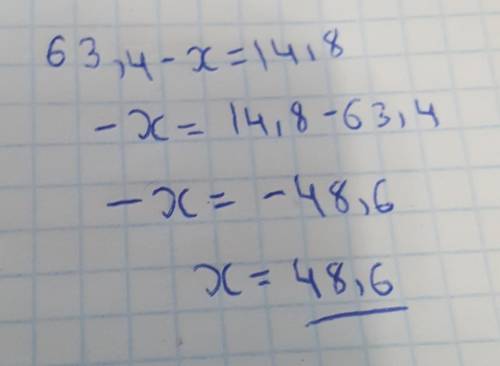 63,4-x=14,8
-x=14,8-63,4
-x=-48,6
x=48,6